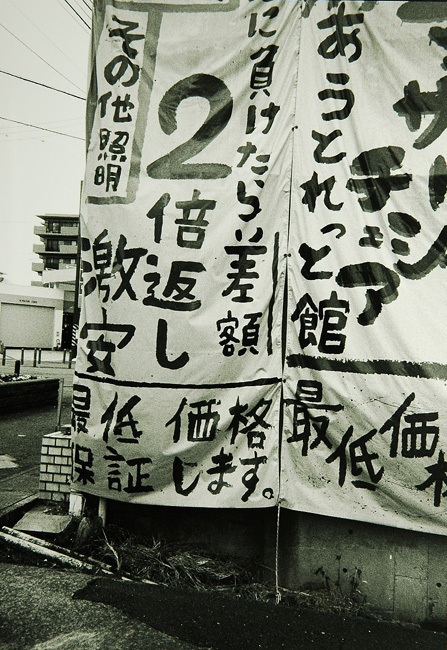 チェア
あうとれっと館
に負けたら差額
2倍返し
その他照明
激安
最低価
最低価格
保証します。